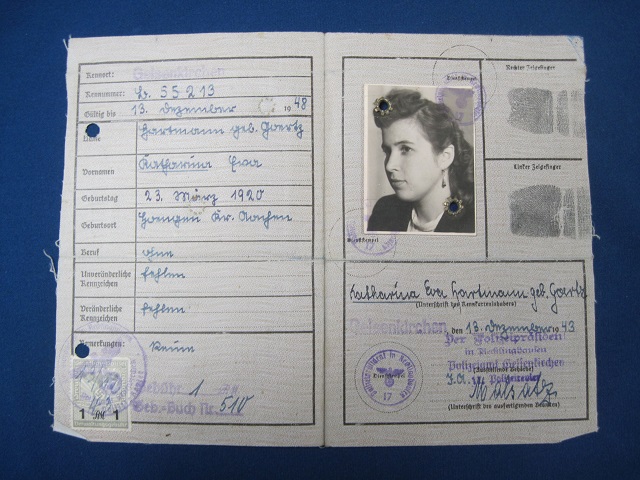 Kennort: Gelsenkirchen
Kennummer: Gr. 55213
Gültig bis 13. Dezember 1948
Name Hartmann geb. Goertz
Vornamen Katharina Eva
Geburtstag 23. März 1920
Geburtsort Hongen Kr. Aachen
Beruf ohne
Unveränderliche Kennzeichen fehlen
Veränderliche Kennzeichen fehlen
Bemerkungen: Keine
Gebühr 1
Geb.-Buch Nr. 510
1 RM 1
Dienststempel
Dienststempel
Rechter Zeigefinger
Linker Zeigefinger
Katharina Eva Hartmann geb. Goertz
(Unterschrift des Kennkarteninhabers)
Gelsenkirchen, den 13. Dezember 1943
Der Polizeipräsident
in Recklinghausen
Polizeiamt Gelsenkirchen
(Ausstellende Behörde)
Dienststempel
17
I.A.
(Unterschrift des ausfertigenden Beamten)